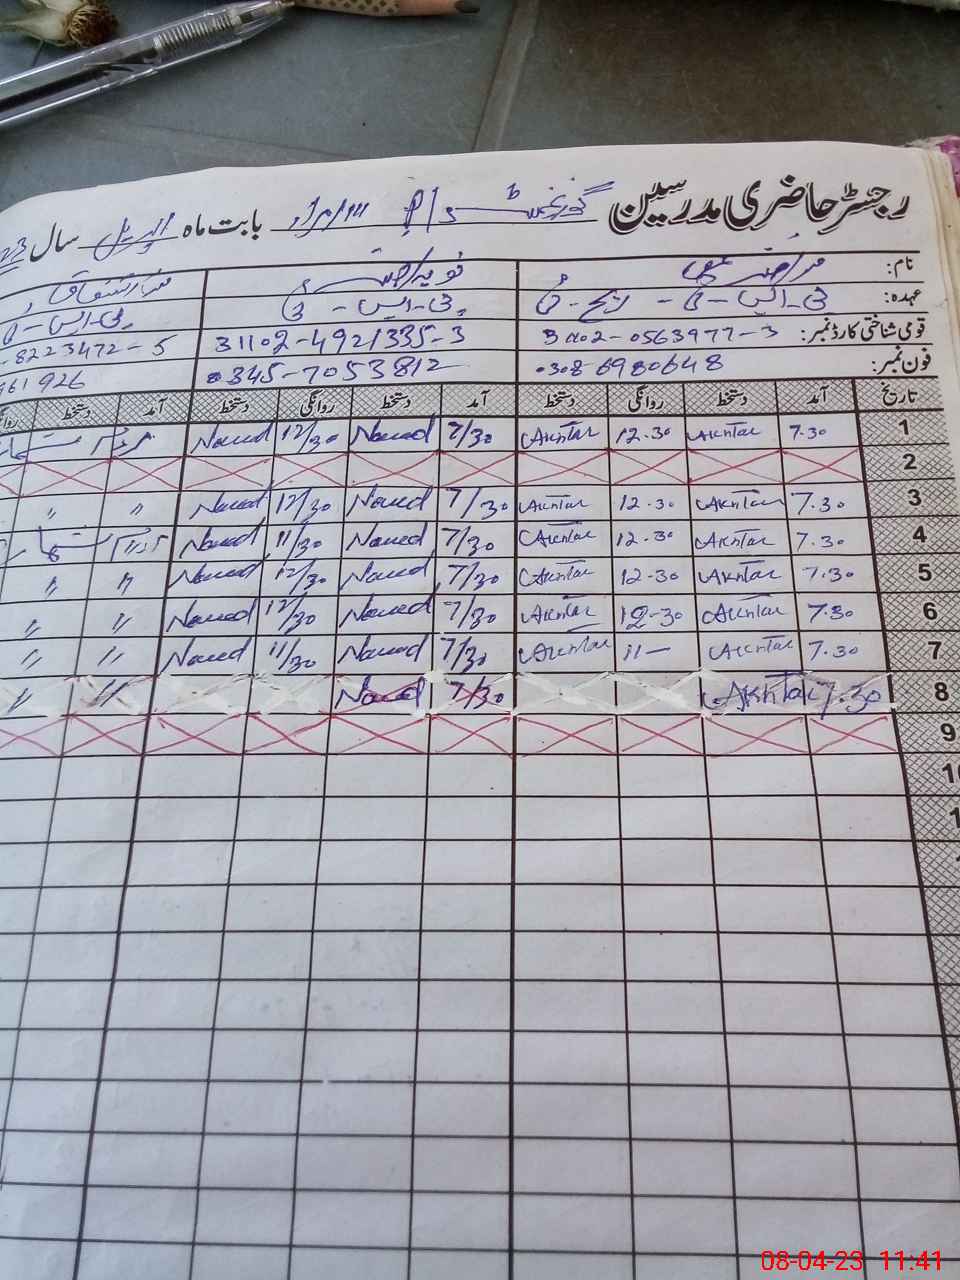 رجسٹر حاضری مدرسین گورنمنٹ بابت ماہ اپریل سال 23
نام:
عہدہ: پی-ایس-ٹی پی-ایس-ٹی پی-ایس-ٹی
قومی شناختی کارڈ نمبر: -0563977-3 31102-4921335-3 -8223472-5
فون نمبر: 0308-6980648 0345-7053812 961926
تاریخ آمد دستخط روانگی دستخط آمد دستخط روانگی دستخط آمد دستخط
1 7.30 Akhtar 12.30 Akhtar 7/30 Naved 12/30 Naved
2
3 7.30 Akhtar 12.30 Akhtar 7/30 Naved 12/30 Naved " "
4 7.30 Akhtar 12.30 Akhtar 7/30 Naved 11/30 Naved
5 7.30 Akhtar 12-30 Akhtar 7/30 Naved 12/30 Naved " "
6 7.30 Akhtar 12-30 Akhtar 7/30 Naved 12/30 Naved " "
7 7.30 Akhtar 11- Akhtar 7/30 Naved 11/30 Naved " "
8 7.30 Akhtar 7/30 Naved " "
9
08-04-23 11:41